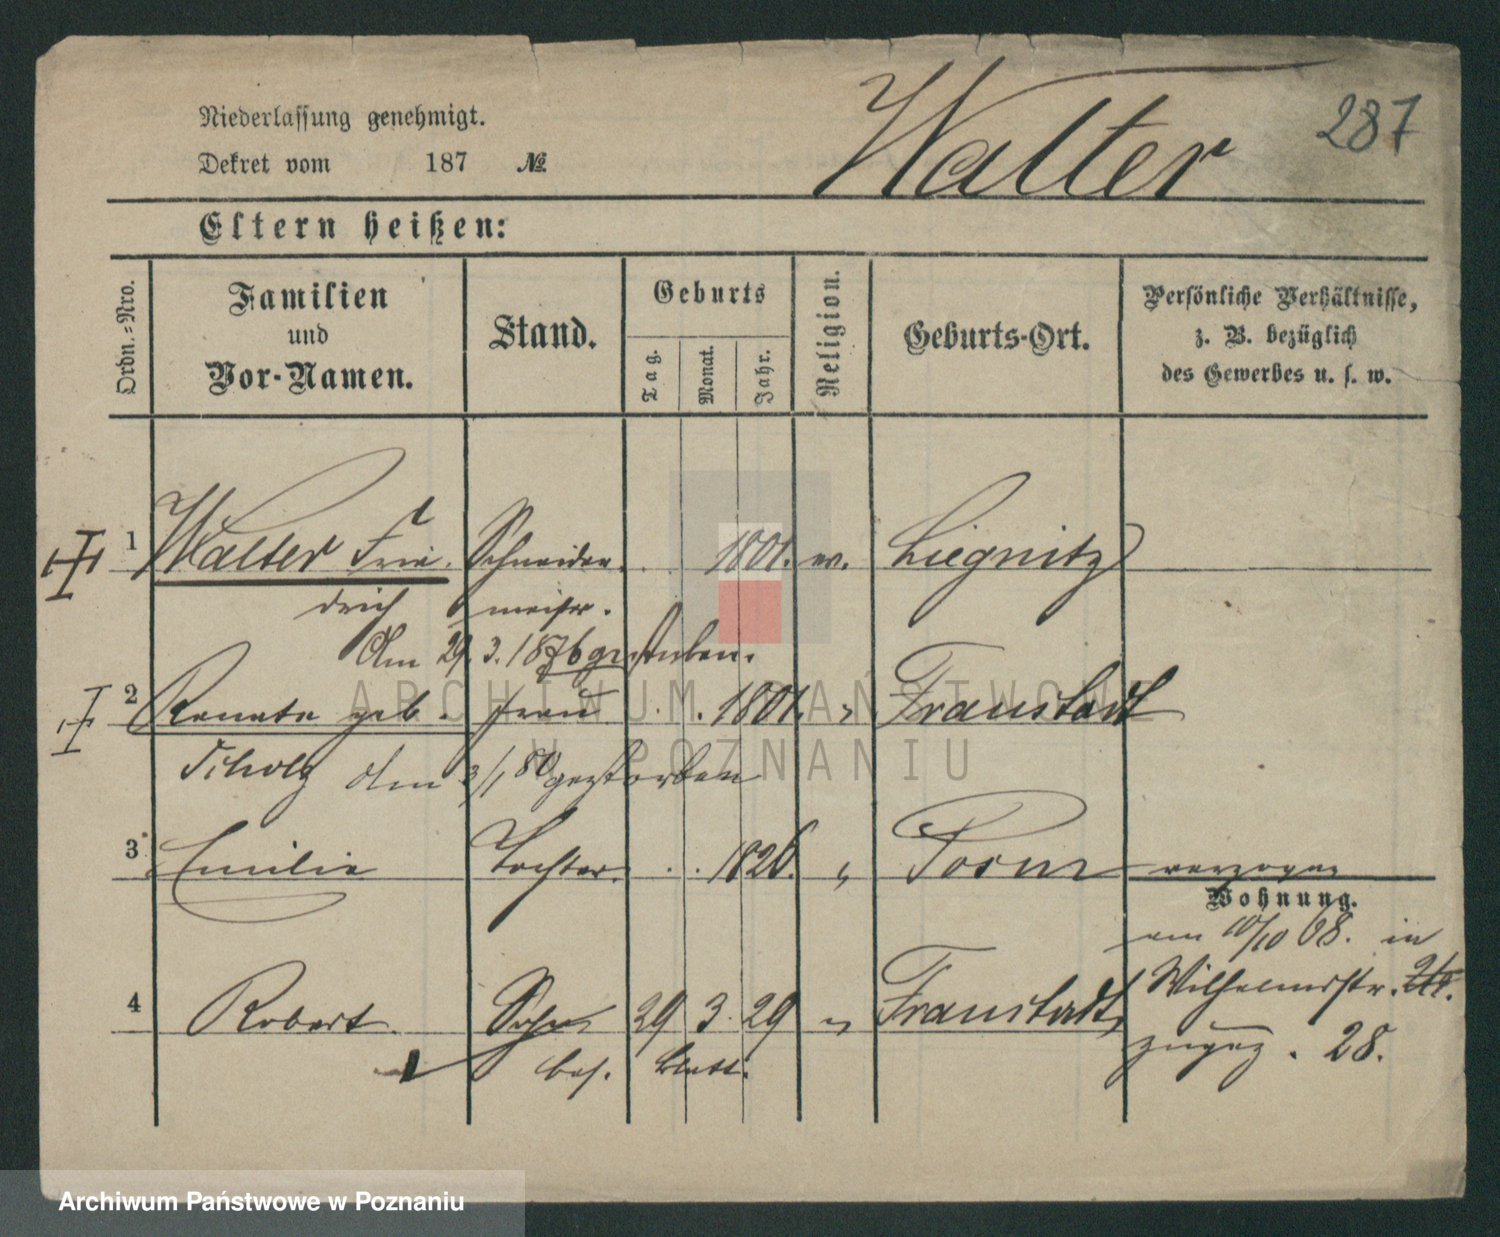 287
Walter
Niederlassung genehmigt.
Dekret vom 187 №
Eltern heißen:
Ordn.=Nro.
Familien
und
Vor-Namen.
Stand.
Geburts
Tag.
Monat.
Jahr.
Religion.
Geburts-Ort.
Persönliche Verhältnisse,
z. B. bezüglich
des Gewerbes u. s. w.
1 Walter Frie- Schneider- 1801. ev. Liegnitz
drich meister.
Am 29. 3. 1876 gestorben.
2 Renate geb. Frau 1801. " Fraustadt
Scholz Am 3/1 80 gestorben
3 Emilie Tochter 1826. " Posen verzogen
Wohnung.
am 10/10 68. in
4 Robert Sohn 29 3. 29 " Fraustadt Wilhelmstr.
bes. Blatt. zugez. 28.
ARCHIWUM PAŃSTWOWE
W POZNANIU
Archiwum Państwowe w Poznaniu